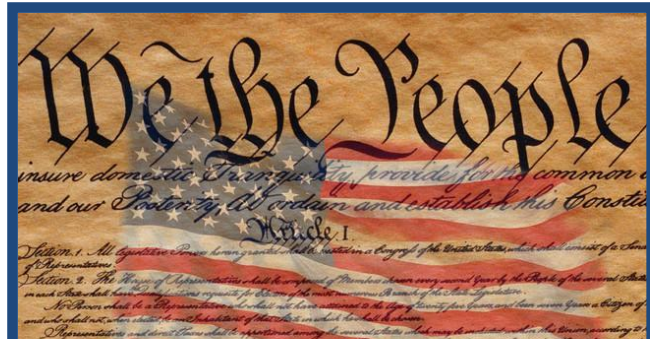 We the People
insure domestic Tranquility, provide for the common
and our Posterity, do ordain and establish this Constit
Article. I.
Section. 1. All legislative Powers herein granted shall be vested in a Congress of the United States, which shall consist of a Sena
of Representatives.
Section. 2. The House of Representatives shall be composed of Members chosen every second Year by the People of the several States
in each State shall have Qualifications requisite for Electors of the most numerous Branch of the State Legislature.
No Person shall be a Representative who shall not have attained to the Age of twenty five Years, and been seven Years a Citizen of
and who shall not, when elected, be an Inhabitant of that State in which he shall be chosen.
Representatives and direct Taxes shall be apportioned among the several States which may be included within this Union, according to